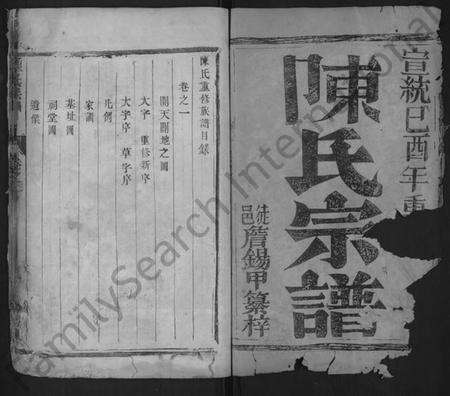 宣統己酉年重
陳氏宗譜
邑庠詹錫甲纂梓
陳氏重修族譜目錄
卷之一
開天闢地之圖
大字序 重修新序
大字序 草字序
凡例
家訓
基址圖
祠堂圖
FamilySearch International